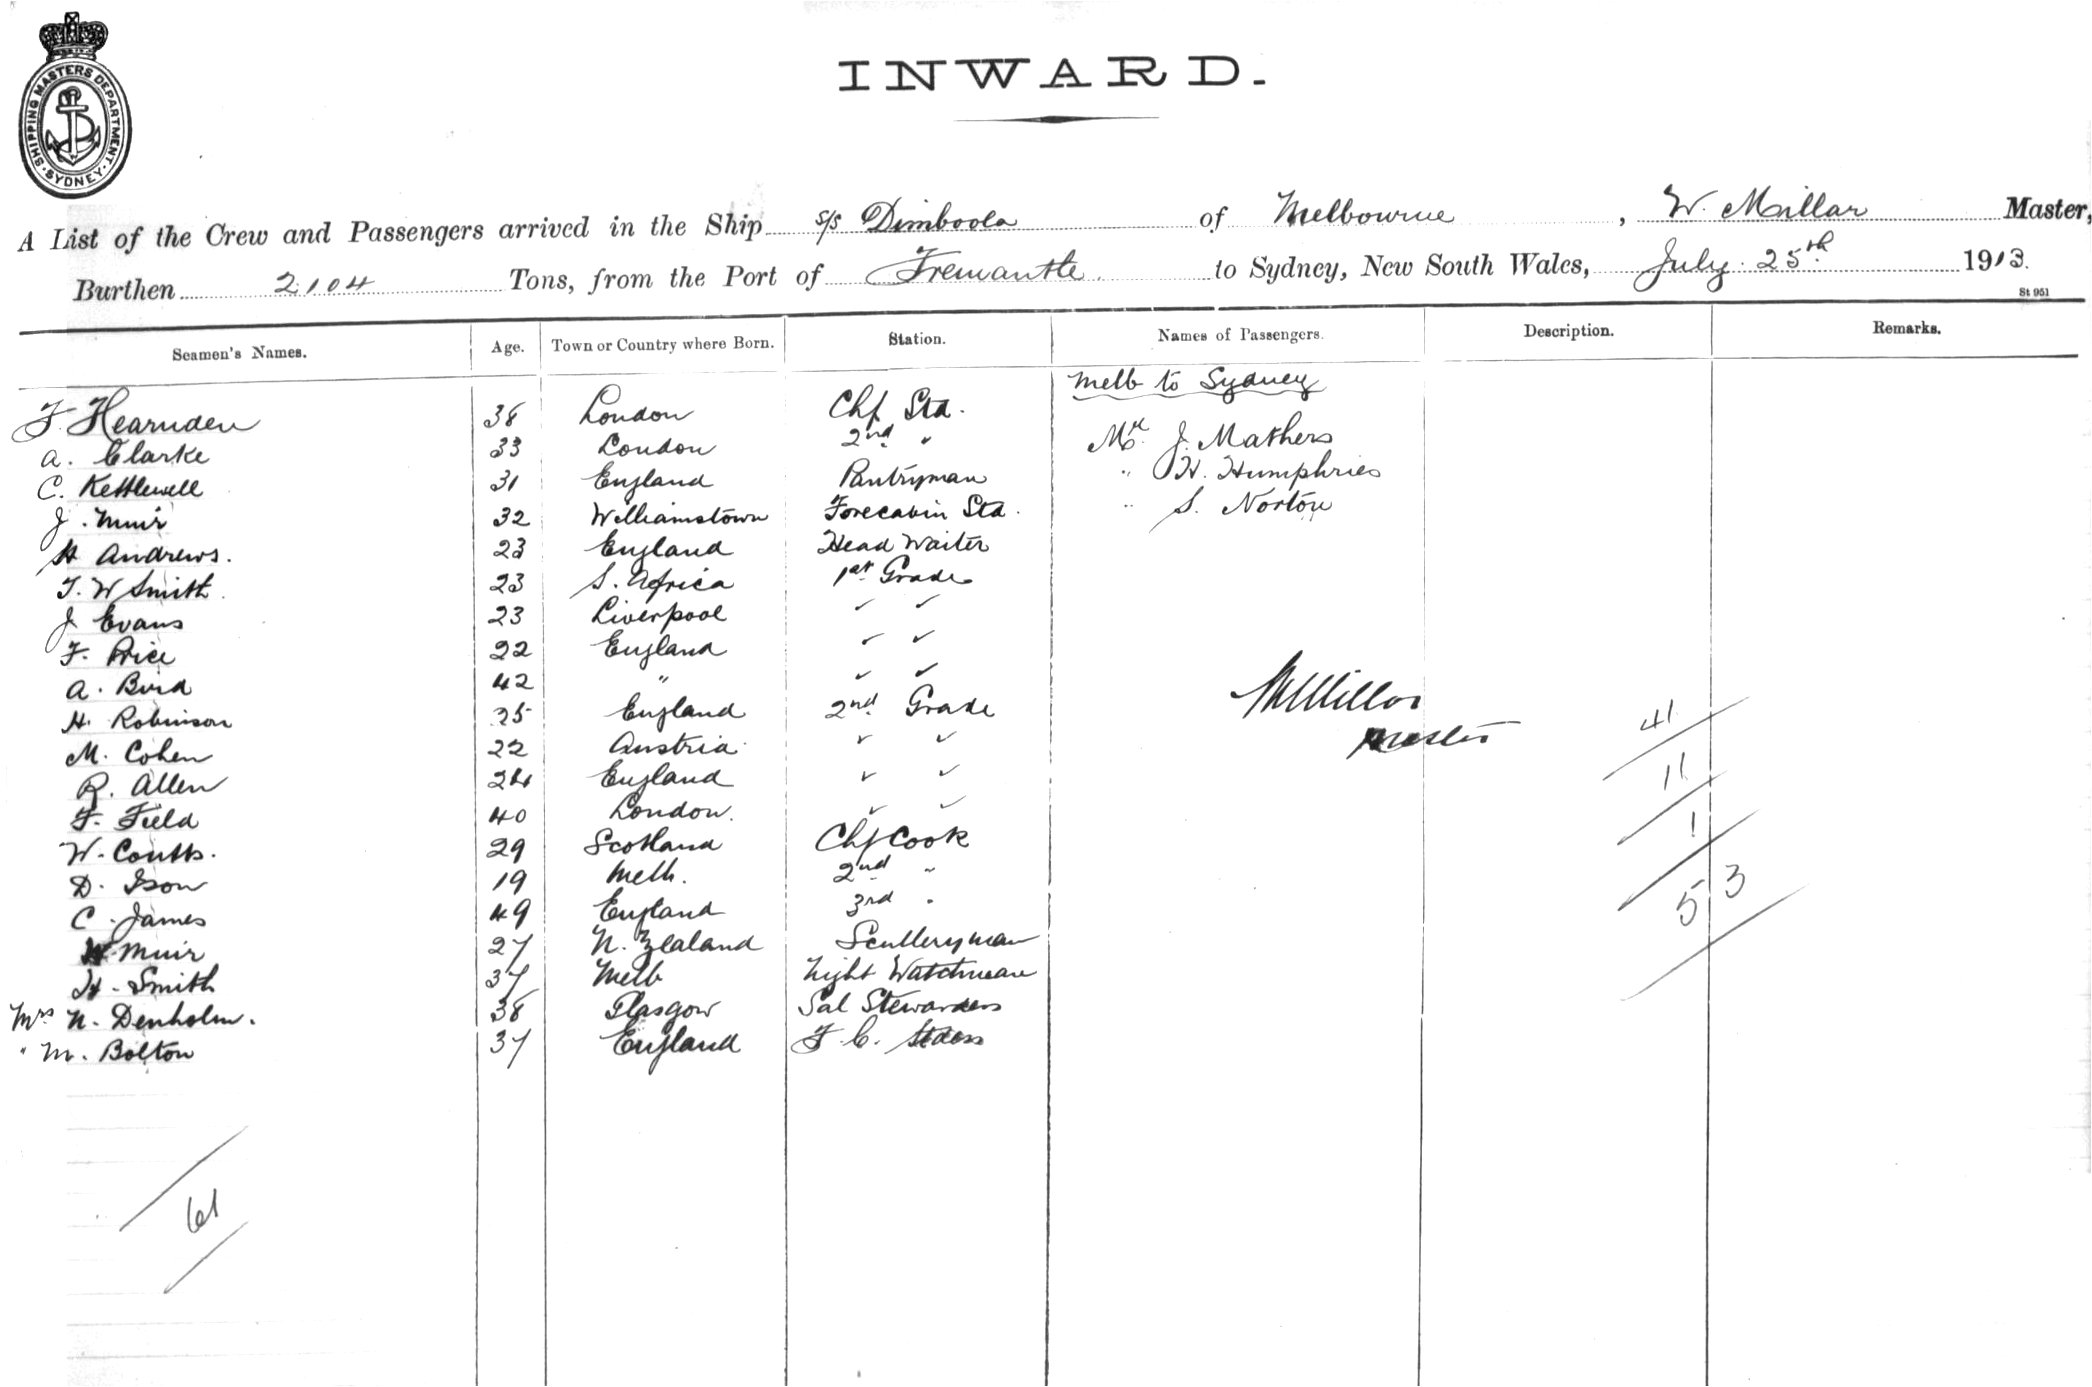 SHIPPING MASTERS DEPARTMENT. SYDNEY.
INWARD.
A List of the Crew and Passengers arrived in the Ship s/s Dimboola of Melbourne, W. Millar Master,
Burthen 2104 Tons, from the Port of Fremantle to Sydney, New South Wales, July 25th 1913.
St 951
Seamen's Names. Age. Town or Country where Born. Station. Names of Passengers. Description. Remarks.
Melb to Sydney
F. Hearnden 38 London Chf Std.
A. Clarke 33 London 2nd " Mr J. Mathers
C. Kettlewell 31 England Pantryman " H. Humphries
J. Muir 32 Williamstown Forecabin Std. " S. Norton
H Andrews. 23 England Head Waiter
T. W Smith 23 S. Africa 1st Grade
J Evans 23 Liverpool " "
F. Price 22 England " "
A. Bird 42 " " "
H. Robinson 25 England 2nd Grade
M. Cohen 22 Austria " "
R. Allen 24 England " "
F. Field 40 London. " "
W. Coutts. 29 Scotland Chf Cook
D. Ison 19 Melb. 2nd "
C. James 49 England 3rd "
Muir 27 N. Zealand Sculleryman
H. Smith 37 Melb Night Watchman
Mrs N. Denholm. 38 Glasgow Sal Stewardess
" M. Bolton 37 England F. C. Stdess
W Millar
Master
41
11
1
53
61